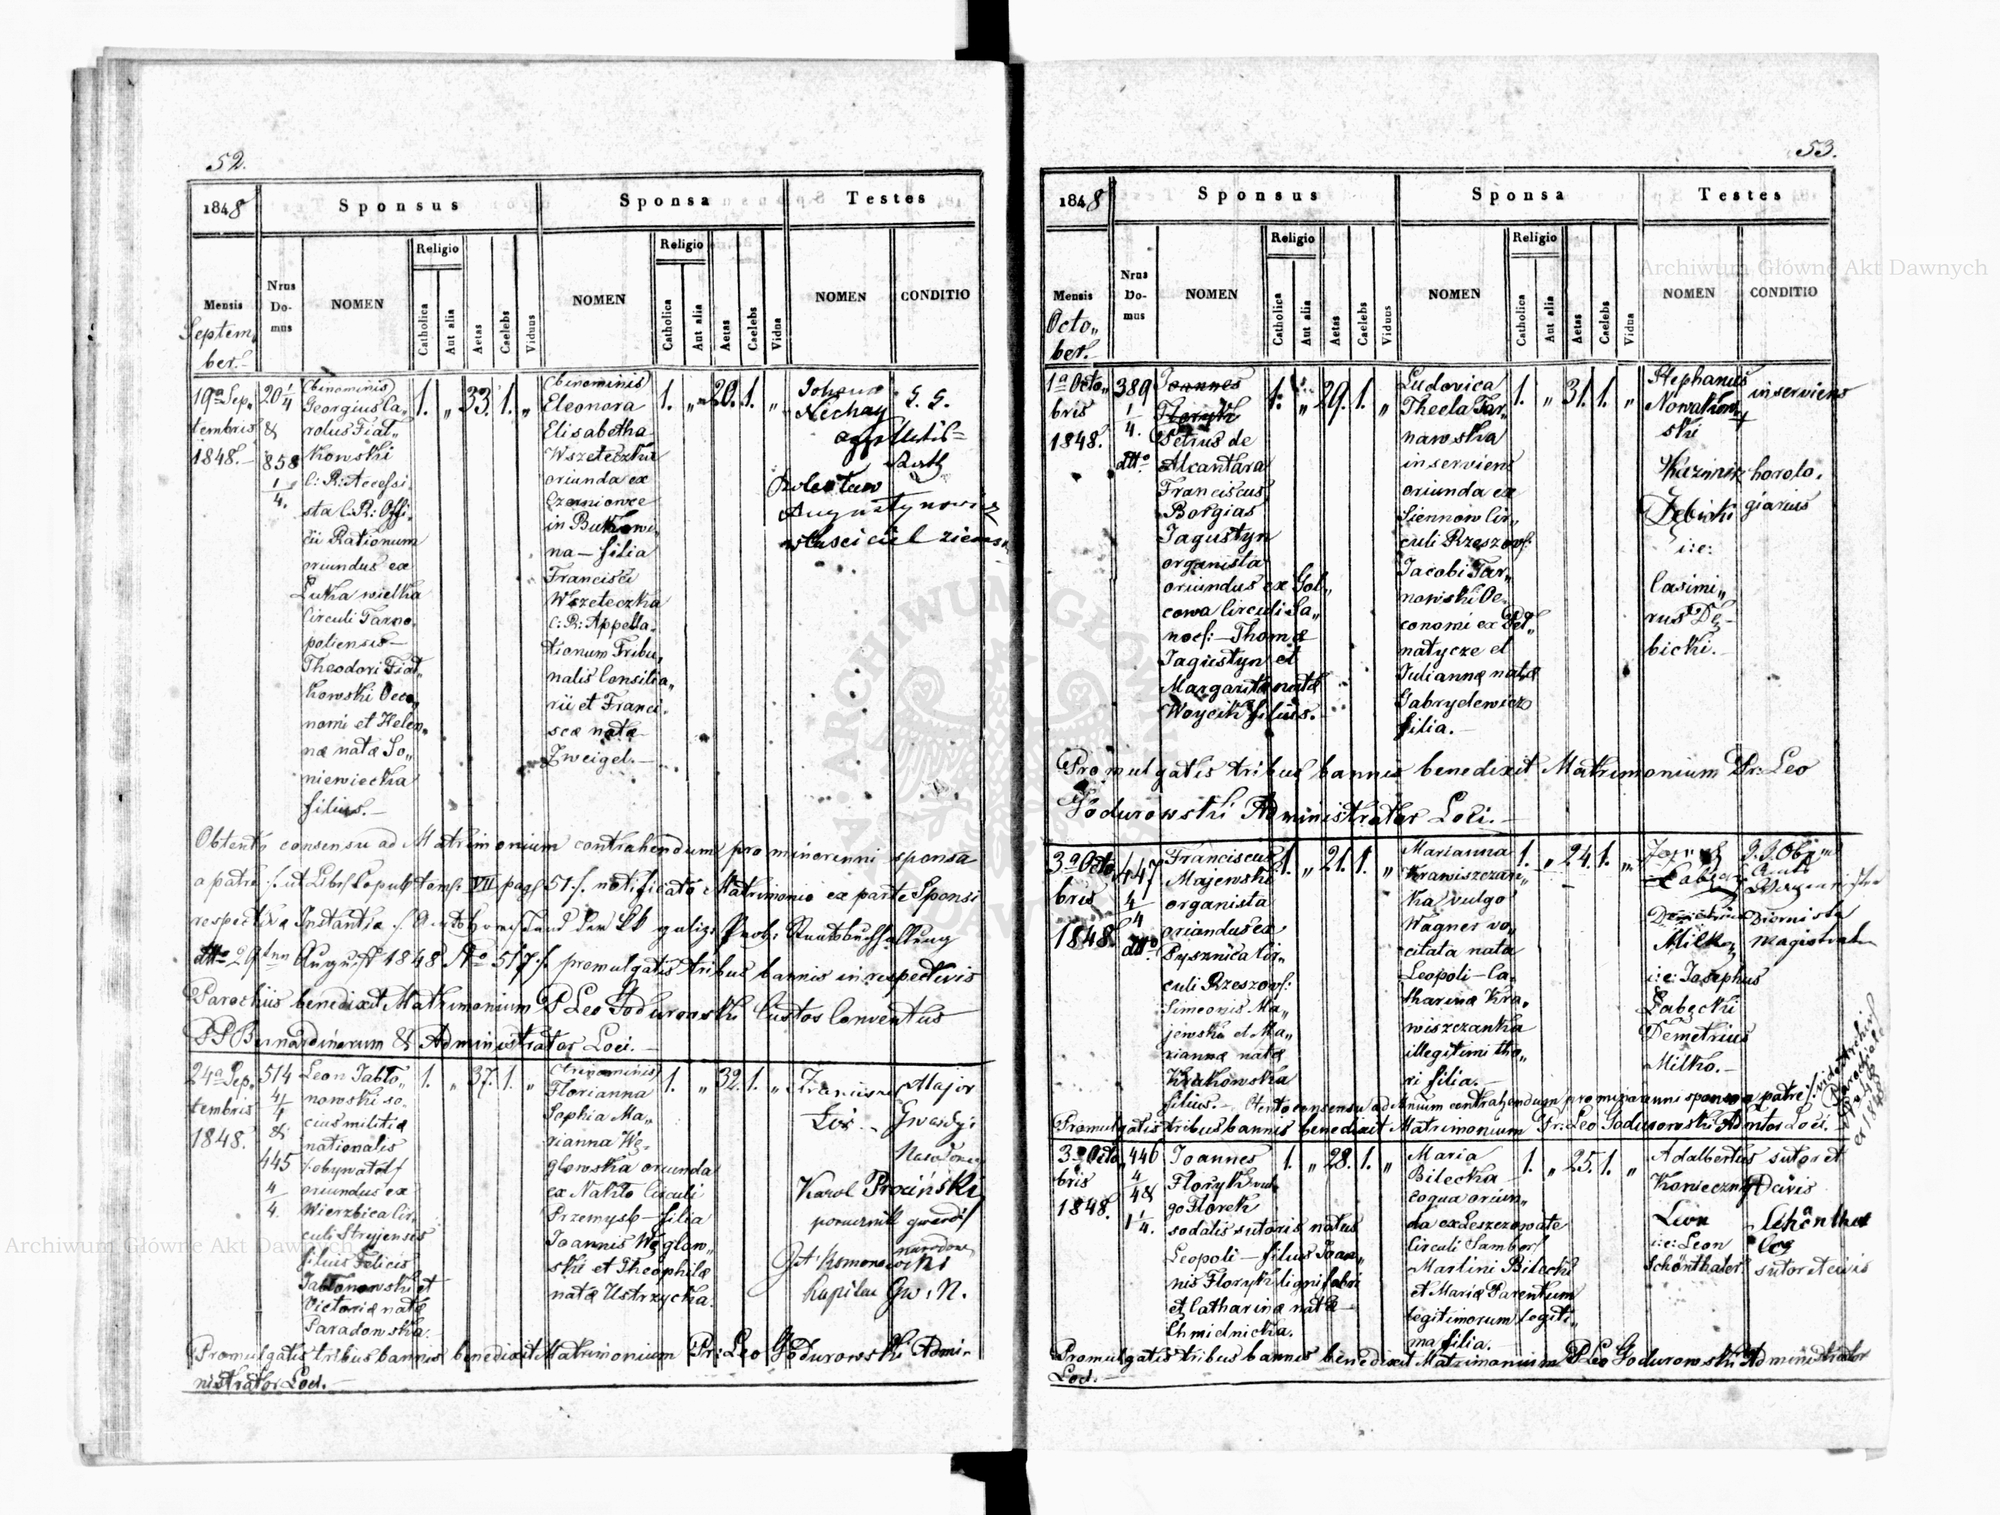 52.
1848
Sponsus
Sponsa
Testes
Mensis
Septem„
ber.
Nrus
Do-
mus
NOMEN
Religio
Catholica
Aut alia
Aetas
Caelebs
Viduus
NOMEN
Religio
Catholica
Aut alia
Aetas
Caelebs
Vidua
NOMEN
CONDITIO
19a Sep„
tembris
1848.
20 1/4
&
858
1/4.
(binominis)
Georgius Ca„
rolus Fiat„
kowski
C: R: Accessi„
sta C: R: Offi„
cii Rationum
oriundus ex
Łuka wielka
Circuli Tarno„
poliensis
Theodori Fiat„
kowski Oeco„
nomi et Hele„
næ natæ So„
niewiecka
filius.
1. „ 33. 1. „
(binominis)
Eleonora
Elisabetha
Wszeteczka
oriunda ex
Czerniowce
in Bukowi„
na – filia
Francisci
Wszeteczka
C: R: Appella„
tionum Tribu„
nalis Consilia„
rii et Franci„
scæ natæ
Zweigel.
1. „ 20. 1. „
Johann
Nechay
Bolesław
Augustynowicz
właściciel ziems
Obtento consensu ad Matrimonium contrahendum pro minorenni sponsa
a patre /: ut Libr: Copul: tom: VII pag: 51 :/ notificato Matrimonio ex parte Sponsi
respectiva Instantia
August 1848 No 517 :/ promulgatis tribus bannis in respectivis
Parochiis benedixit Matrimonium P Leo Godurowski Custos Conventus
PP Bernardinorum & Administrator Loci.
24a Sep„
tembris
1848.
514
4/4
&
445
4/4.
Leon Jabło„
nowski so„
cius militiæ
nationalis
/: obywatel :/
oriundus ex
Wierzbica Cir„
culi Stryjensis
filius Felicis
Jabłonowski et
Victoriæ natæ
Paradowska.
1. „ 37. 1. „
(trinominis)
Florianna
Sophia Ma„
rianna Wę„
glowska oriunda
ex Nakło Circuli
Przemysl – filia
Joannis Węglow„
ski et Theophilæ
natæ Ustrzycka.
1. „ 32. 1. „
Major
Gwardyi
Karol Prociński
porucznik gwardyi
Kapitan Gw: N.
Promulgatis tribus bannis benedixit Matrimonium Pr: Leo Godurowski Admi-
nistrator Loci.
53.
1848
Sponsus
Sponsa
Testes
Mensis
Octo„
ber.
Nrus
Do-
mus
NOMEN
Religio
Catholica
Aut alia
Aetas
Caelebs
Viduus
NOMEN
Religio
Catholica
Aut alia
Aetas
Caelebs
Vidua
NOMEN
CONDITIO
1a Octo„
bris
1848.
389
1/4.
dtto
Joannes
Floryk
Petrus de
Alcantara
Franciscus
Borgias
Jagustyn
organista
oriundus ex Gol„
cowa Circuli Sa„
noc: – Thomæ
Jagustyn et
Margaritæ natæ
Woycik filius.
1. „ 29. 1. „
Ludovica
Thecla Tar„
nawska
inserviens
oriunda ex
Siennow Cir„
culi Rzeszov:
Jacobi Tar„
nowski Oe„
conomi ex Deł„
natycze et
Juliannæ natæ
Gabrydewicz
filia.
1. „ 31. 1. „
Stephanus
Nowakow
ski
inserviens
Kazimirz
Dębicki
horolo„
giarius
i: e:
Casimi„
rus Dę–
bicki.
Promulgatis tribus bannis benedixit Matrimonium Pr: Leo
Godurowski Administrator Loci.
3a Octo„
bris
1848.
447
4/4
dtto
Franciscus
Majewski
organista
oriundus ex
Pysznica Cir„
culi Rzeszov:
Simeonis Ma„
jewski et Ma„
riannæ natæ
Krakowska
filius.
1. „ 21. 1. „
Marianna
Krawiszczan„
ka vulgo
Wagner vo„
citata nata
Leopoli – Ca„
tharinæ Kra„
wiszczanka
illegitimi tho„
ri filia.
1. „ 24. 1. „
Józef
Łabęcki
Demetrius
Milko
Diornista
Magistrat
i: e: Josephus
Łabęcki
Demetrius
Milko.
Obtento consensu ad Mnium contrahendum pro minorenni sponso a patre /: vide Archiv:
Parochiale
ex 1848
Promulgatis tribus bannis benedixit Matrimonium Pr: Leo Godurowski Admtor Loci.
3a Octo„
bris
1848.
446
4/4 &
1 1/4.
Joannes
Floryk vul„
go Florek
sodalis sutoris natus
Leopoli – filius Joan„
nis Floryk lignifabri
et Catharinæ natæ
Chmielnicka.
1. „ 28. 1. „
Maria
Bilecka
coqua oriun„
da ex Leszczowate
Circuli Sambor:
Martini Bilecki
et Mariæ Parentum
legitimorum legiti„
ma filia.
1. „ 25. 1. „
Adalbertus
Konieczny
sutor et
civis
Leon
Schönthaler
i: e: Leon
Schönthaler
sutor et civis
Promulgatis tribus bannis benedixit Matrimonium P Leo Godurowski Administrator
Loci.
Archiwum Główne Akt Dawnych
Archiwum Główne Akt Dawnych